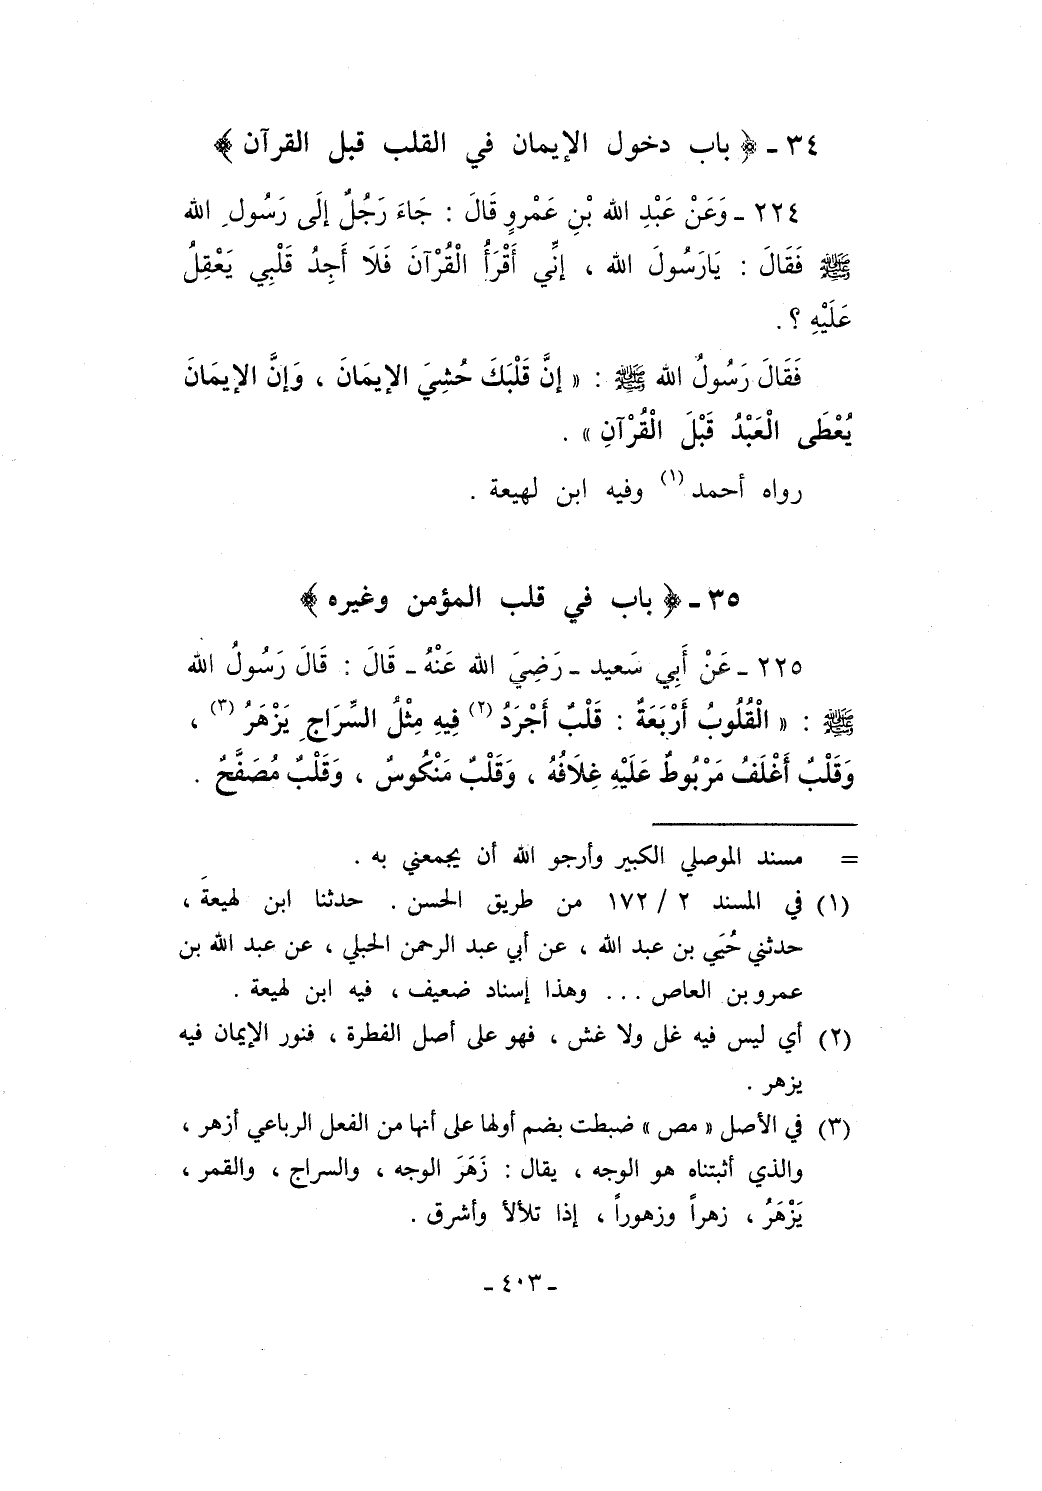 ٣٤ ـ ﴿ باب دخول الإيمان في القلب قبل القرآن ﴾
٢٢٤ ـ وَعَنْ عَبْدِ الله بْنِ عَمْروٍ قَالَ : جَاءَ رَجُلٌ إلَى رَسُولِ الله
ﷺ فَقَالَ : يَارَسُولَ الله ، إنِّي أَقْرَأُ الْقُرْآنَ فَلَا أَجِدُ قَلْبِي يَعْقِلُ
عَلَيْهِ ؟ .
فَقَالَ رَسُولُ الله ﷺ : « إنَّ قَلْبَكَ حُشِيَ الإيمَانَ ، وَإنَّ الإيمَانَ
يُعْطَى الْعَبْدُ قَبْلَ الْقُرْآنِ » .
رواه أحمد (١) وفيه ابن لهيعة .
٣٥ ـ ﴿ باب في قلب المؤمن وغيره ﴾
٢٢٥ ـ عَنْ أَبِي سَعيد ـ رَضِيَ الله عَنْهُ ـ قَالَ : قَالَ رَسُولُ الله
ﷺ : « الْقُلُوبُ أَرْبَعَةٌ : قَلْبٌ أَجْرَدُ (٢) فِيهِ مِثْلُ السِّرَاجِ يَزْهَرُ (٣) ،
وَقَلْبٌ أَغْلَفُ مَرْبُوطٌ عَلَيْهِ غِلَافُهُ ، وَقَلْبٌ مَنْكُوسٌ ، وَقَلْبٌ مُصَفَّحٌ .
= مسند الموصلي الكبير وأرجو الله أن يجمعني به .
(١) في المسند ٢ / ١٧٢ من طريق الحسن . حدثنا ابن لهيعة ،
حدثني حُيَي بن عبد الله ، عن أبي عبد الرحمن الحبلي ، عن عبد الله بن
عمرو بن العاص ... وهذا إسناد ضعيف ، فيه ابن لهيعة .
(٢) أي ليس فيه غل ولا غش ، فهو على أصل الفطرة ، فنور الإيمان فيه
يزهر .
(٣) في الأصل « مص » ضبطت بضم أولها على أنها من الفعل الرباعي أزهر ،
والذي أثبتناه هو الوجه ، يقال : زَهَرَ الوجه ، والسراج ، والقمر ،
يَزْهَرُ ، زهراً وزهوراً ، إذا تلألأ وأشرق .
ـ ٤٠٣ ـ